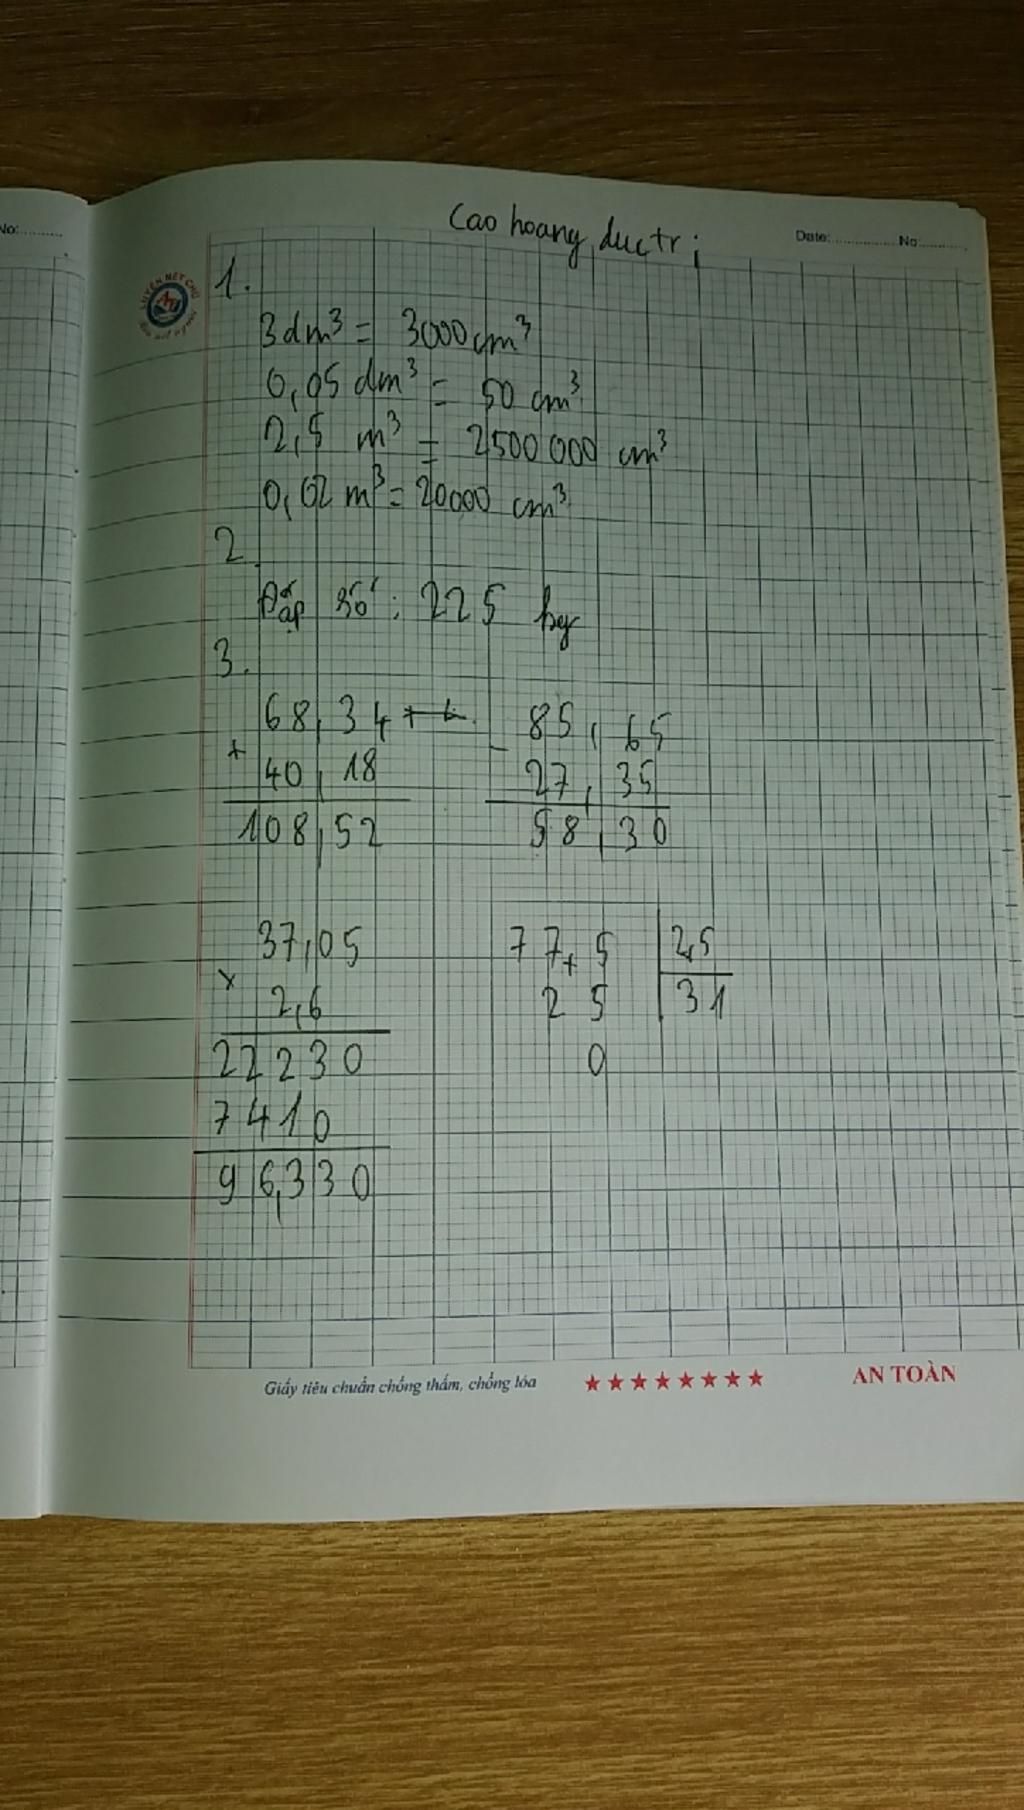 No:.........
Cao hoang ductri
Date:................ No:............
LUYỆN NÉT CHỮ
1.
3dm³ = 3000cm³
0,05 dm³ = 50 cm³
2,5 m³ = 2500 000 cm³
0,02 m³ = 20000 cm³
2
Đáp số: 225 kg
3.
68,34
+
40,18
108,52
85,65
-
27,35
58,30
37,05
x
2,6
22230
7410
96,330
77,5 2,5
2 5 31
0
Giấy tiêu chuẩn chống thấm, chống lóa ★★★★★★★★ AN TOÀN